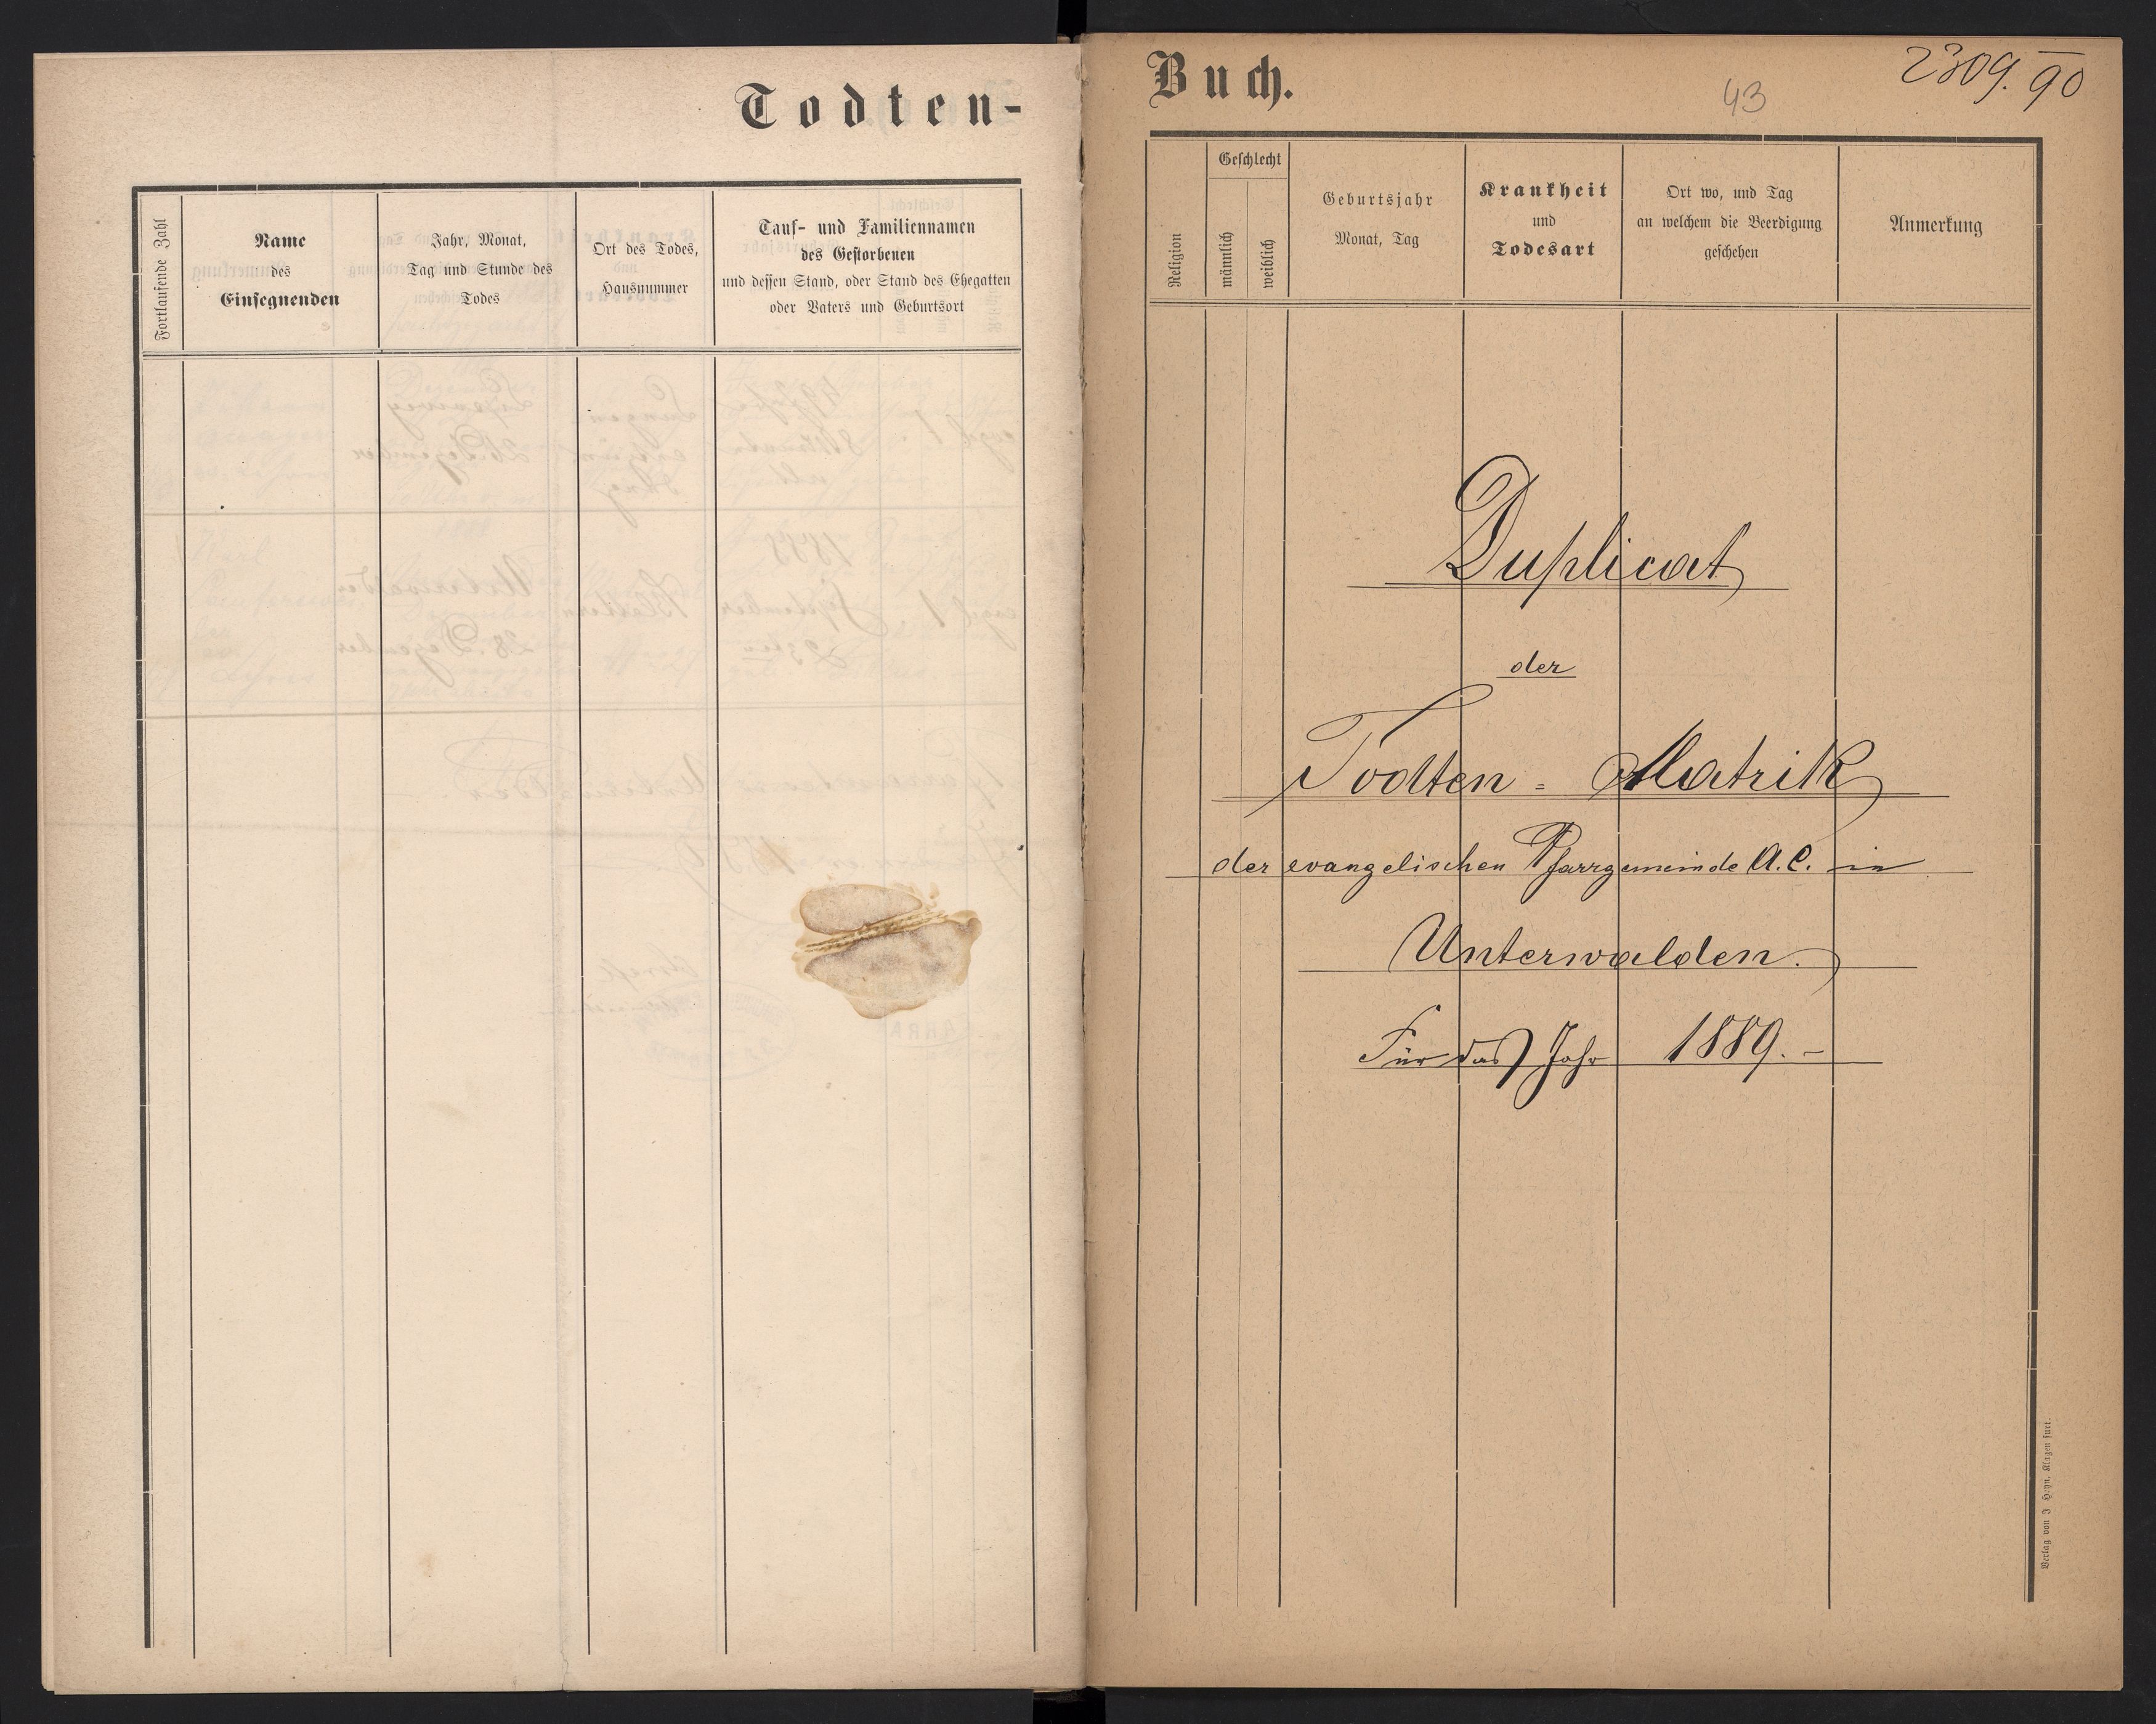 Todten-
Fortlaufende Zahl
Name
des
Einsegnenden
Jahr, Monat,
Tag und Stunde des
Todes
Ort des Todes,
Hausnummer
Tauf- und Familiennamen
des Gestorbenen
und dessen Stand, oder Stand des Ehegatten
oder Vaters und Geburtsort
Buch.
43
2309.90
Religion
Geschlecht
männlich
weiblich
Geburtsjahr
Monat, Tag
Krankheit
und
Todesart
Ort wo, und Tag
an welchem die Beerdigung
geschehen
Anmerkung
Duplicat
der
Todten = Matrik
der evangelischen Pfarrgemeinde A. C. in
Unterwalden.
Für das Jahr 1889. -
Verlag von J. Heyn, Klagenfurt.